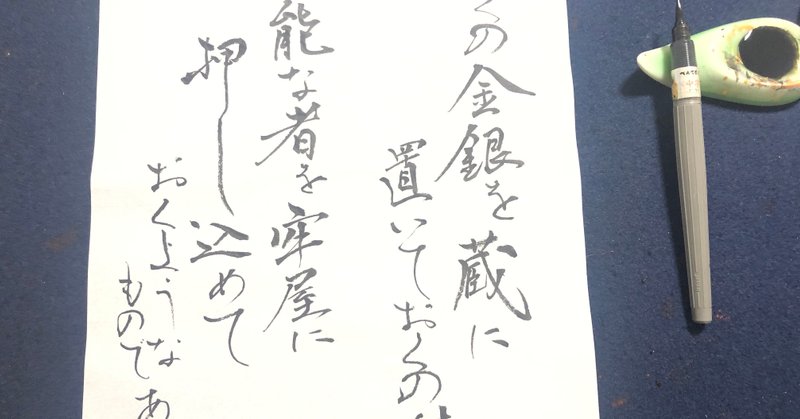 の金銀を蔵に
置いておくの
能な者を牢屋に
押し込めて
おくような
ものであ